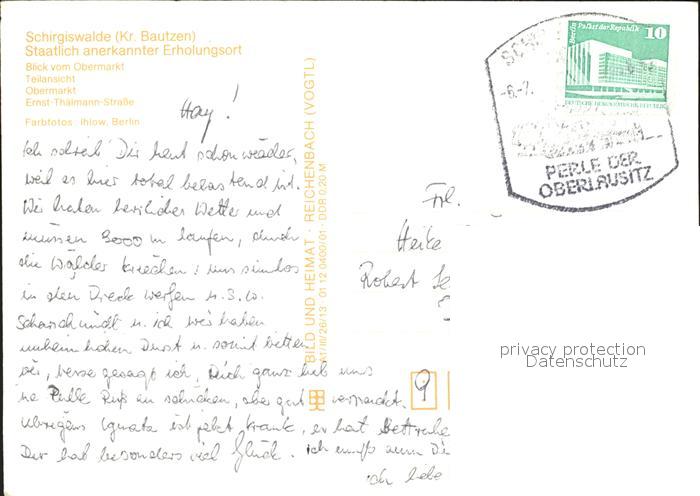 Schirgiswalde (Kr. Bautzen)
Staatlich anerkannter Erholungsort
Blick vom Obermarkt
Teilansicht
Obermarkt
Ernst-Thälmann-Straße
Farbfotos: Ihlow, Berlin
Hay!
Ich schreib Dir heut schon wieder,
weil es hier total belastend ist.
Wir haben herrliches Wetter und
müssen 3000 m laufen, durch
die Wälder kriechen, uns sinnlos
in den Dreck werfen u.s.w.
u. ich wir haben
unheimlichen Durst u. somit bitten
wir, besser gesagt ich, Dich ganz lieb uns
ne Pulle zu schicken, aber gut verpackt.
Übrigens ist jetzt krank, er hat Bettruhe
Der hat besonders viel Glück. Ich muß nun
ich liebe
BILD UND HEIMAT · REICHENBACH (VOGTL)
A1/III/26/13 01 12 0400/01 · DDR 0,20 M
Berlin Palast der Republik
10
DEUTSCHE DEMOKRATISCHE REPUBLIK
-6.-7.
PERLE DER
OBERLAUSITZ
Frl.
Heike
Robert
9
privacy protection
Datenschutz